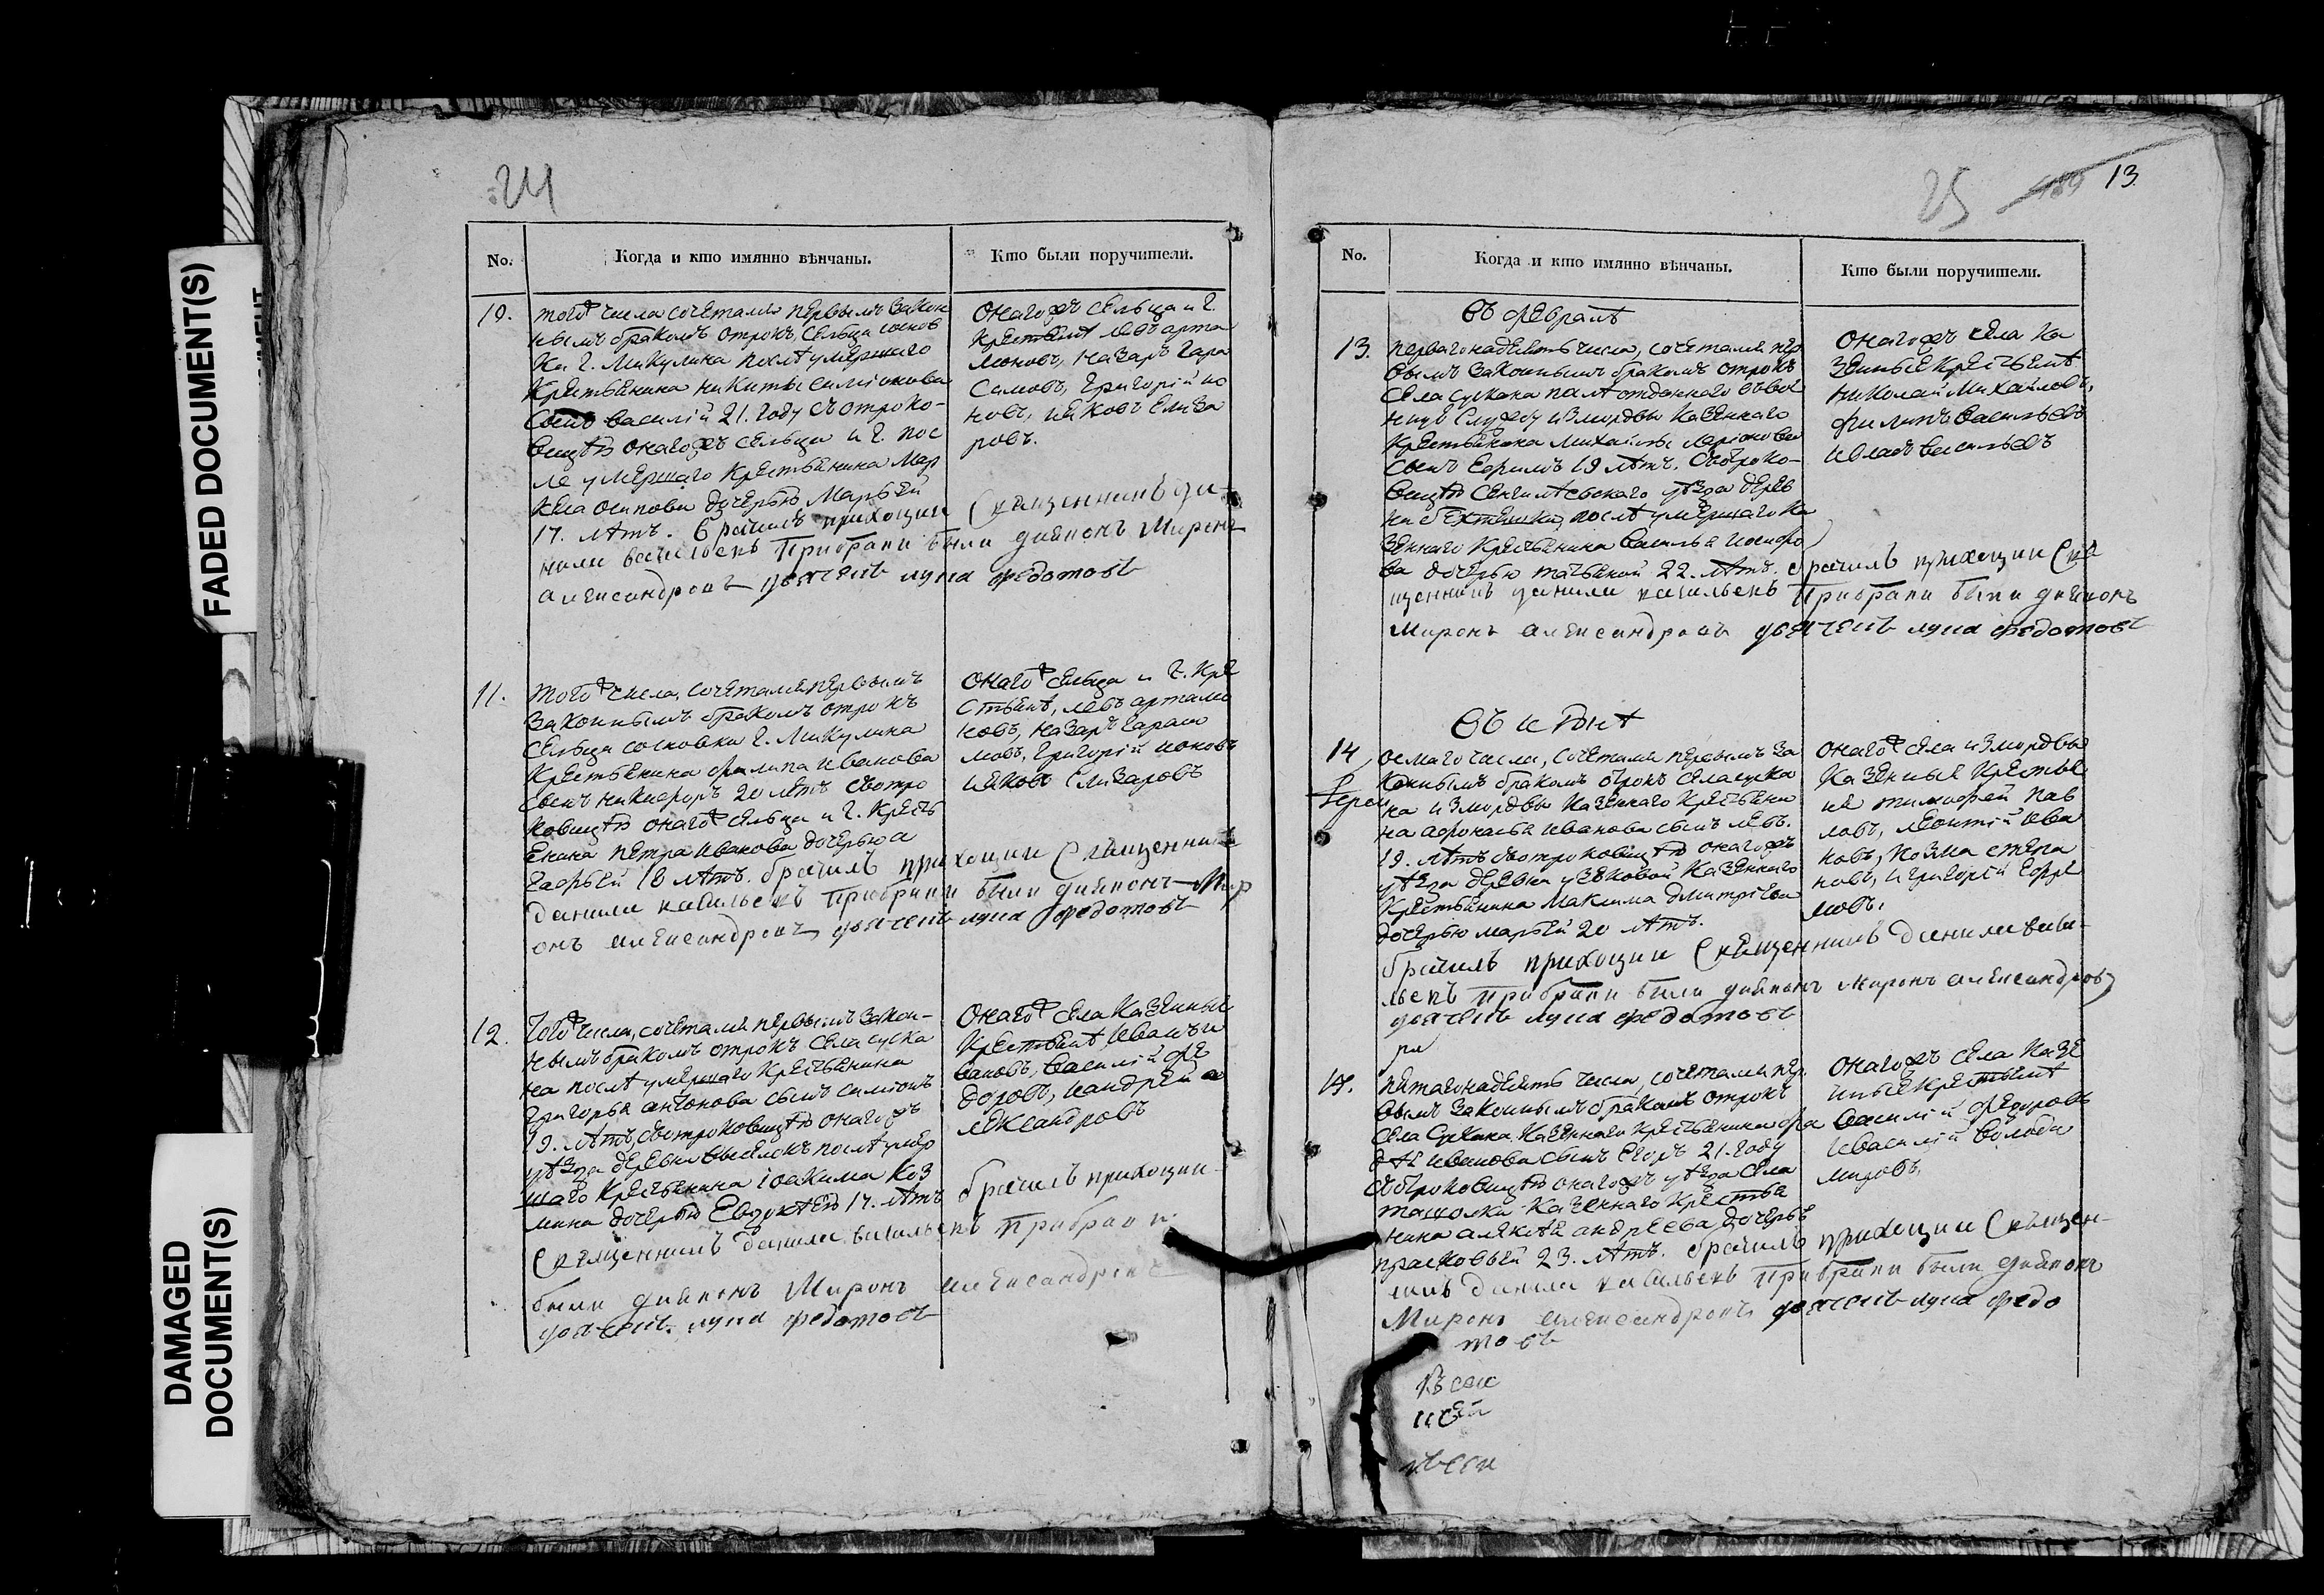 FADED DOCUMENT(S)
DAMAGED
DOCUMENT(S)
24
No.
Когда и кто имянно вѣнчаны.
Кто были поручители.
10.
тогож числа сочетался первымъ закон
нымъ бракомъ отрокъ, сельца соснов
ки г. Микулина послѣ умершаго
крестьянина никиты симіонова
сынъ василій 21. году съ отроко-
вицѣю онагожъ сельца и г. пос
ле умершаго крестьянина мар
кела осипова дочерью Марьей
17. лѣтъ. брачилъ приходский священникъ да-
нила васильевъ При браки были диякон Мирон
александровъ дьячекъ лука федотовъ
онагожъ сельца и г.
крестьяне левъ арта
моновъ, назаръ гара
симовъ, григорій ио
новъ, ияковъ елиза
ровъ.
11.
тогож числа, сочетался первымъ
законнымъ бракомъ отрокъ
сельца сосновки г. Микулина
крестьянина филипа иванова
сынъ никифоръ 20 лѣтъ съ отро
ковицѣю онагож сельца и г. кресть
янина петра иванова дочерью а
гафьей 18 лѣтъ. брачилъ приходский священникъ
данила васильевъ При браки были диякон Мир
онъ александровъ дьячекъ лука федотовъ
онагож сельца и г. кре
стьяне, левъ артамо
новъ, назаръ гараси
мовъ, григорій ионовъ
иякокъ елизаровъ
12.
тогож числа, сочетался первымъ закон-
нымъ бракомъ отрокъ села суска
на послѣ умершаго крестьянина
григорья антонова сынъ симіонъ
19. лѣтъ, съ отроковицѣю онагожъ
уѣзда деревни выселокъ послѣ умер
шаго крестьянина іоакима коз
мина дочерью Евдокѣею 17. лѣтъ брачилъ приходский
священникъ данила васильевъ При браки
были дияконъ Миронъ александровъ
дьячекъ лука федотовъ
онагож села казенные
крестьяне, иванъ и
вановъ, василій фе
доровъ, иандрей а
лександровъ
25
13.
No.
Когда и кто имянно вѣнчаны.
Кто были поручители.
въ феврале
13.
перваго надесять числа, сочетался пер
вымъ законнымъ бракомъ отрокъ
села сускана
службу измордвы казеннаго
крестьянина михайлы ларіонова
сынъ ефимъ 19 лѣтъ. съ отроко-
вицѣю сенгилѣевскаго уѣзда дерев
ни бектяшки, послѣ умершаго ка
зеннаго крестьянина василья
дочерью татьяной 22. лѣтъ. брачилъ приходский свя
щенникъ данила васильевъ При браки были дияконъ
Миронъ александровъ дьячекъ лука федотовъ
онагожъ села ка
зенные крестьяне
николай михайловъ,
филипъ васильевъ
василъевъ
въ июнѣ
14
осмаго числа, сочетался первымъ за
коннымъ бракомъ отрокъ села суска
на измордвы казеннаго крестьяни
на афонасья иванова сынъ левъ.
19. лѣтъ съ отроковицѣю онагожъ
уѣзда деревни узюковой казеннаго
крестьянина максима дмитріева
дочерью марьей 20 лѣтъ.
брачилъ приходский священникъ данила васи-
льевъ При браки были дияконъ миронъ александровъ
дьячекъ лука федотовъ
онагож села измордвы
казенные крестья
не тимофей пав
ловъ, леонтій ива
новъ, козма степа
новъ, и григорій ефре
мовъ.
15.
пятаго надесять числа, сочетался пер
вымъ законнымъ бракомъ отрокъ
села сускана казеннаго крестьянина фа
дѣя иванова сынъ егоръ 21. году
съ отроковицѣю онагожъ уѣзда села
ташолки казеннаго крестья
нина алексѣя андреева дочерью
прасковьей 23. лѣтъ. брачилъ приходский священ-
никъ данила васильевъ При браки были дияконъ
Миронъ александровъ дьячекъ лука федо
товъ
онагожъ села казе
нные крестьяне
василій федоровъ
ивасилій володи
мировъ.